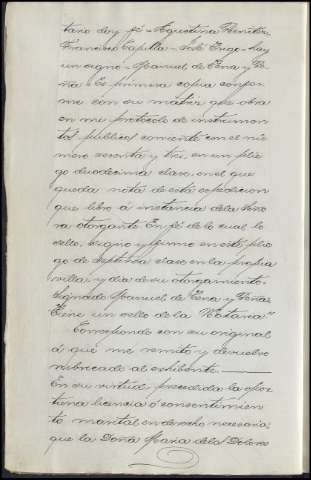 tario doy fé = Agustina Benitez
Francisco Capilla = José Trigo = Hay
un signo = Manuel de Pena y Pe-
ña = Es primera copia confor-
me con su matriz que obra
en mi protocolo de instrumen-
tos públicos corriente con el nú-
mero sesenta y tres, en un plie-
go duodecima clase, en el que
queda nota de esta espedicion
que libro á instancia dela Seño-
ra otorgante. En fé de lo cual lo
sello, signo y firmo en este plie-
go de septima clase en la propia
villa y dia de su otorgamiento.
Signado Manuel de Pena y Peña.
Tiene un sello de la Notaria."
Corresponde con su original
á que me remito y devuelvo
rubricado al exhibente.
En su virtud precedida la opor-
tuna licencia ó consentimien
to marital en derecho necesaria,
que la Doña Maria delos Dolores